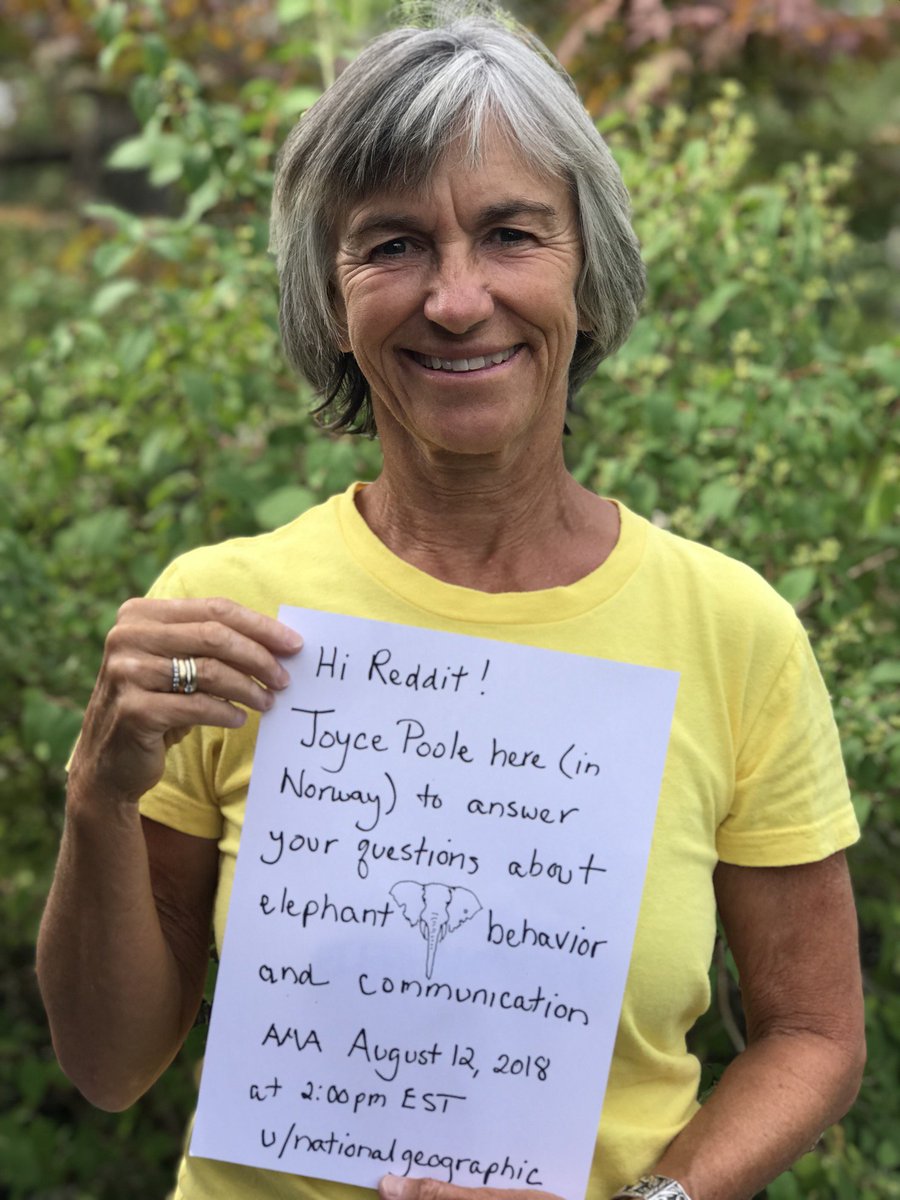 Hi Reddit!
Joyce Poole here (in
Norway) to answer
your questions about
elephant behavior
and communication
AMA August 12, 2018
at 2:00pm EST
u/nationalgeographic